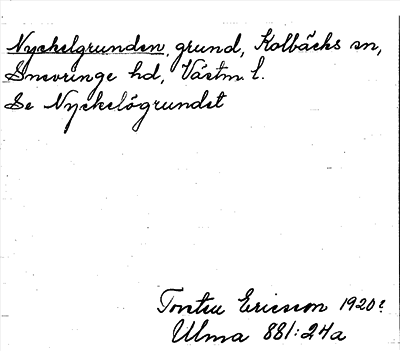 Nyckelgrunden, grund, Kolbäcks sn,
Snevringe hd, Västm. l.
Se Nyckelögrundet
Ericsson 1920?
Ulma 881:24a